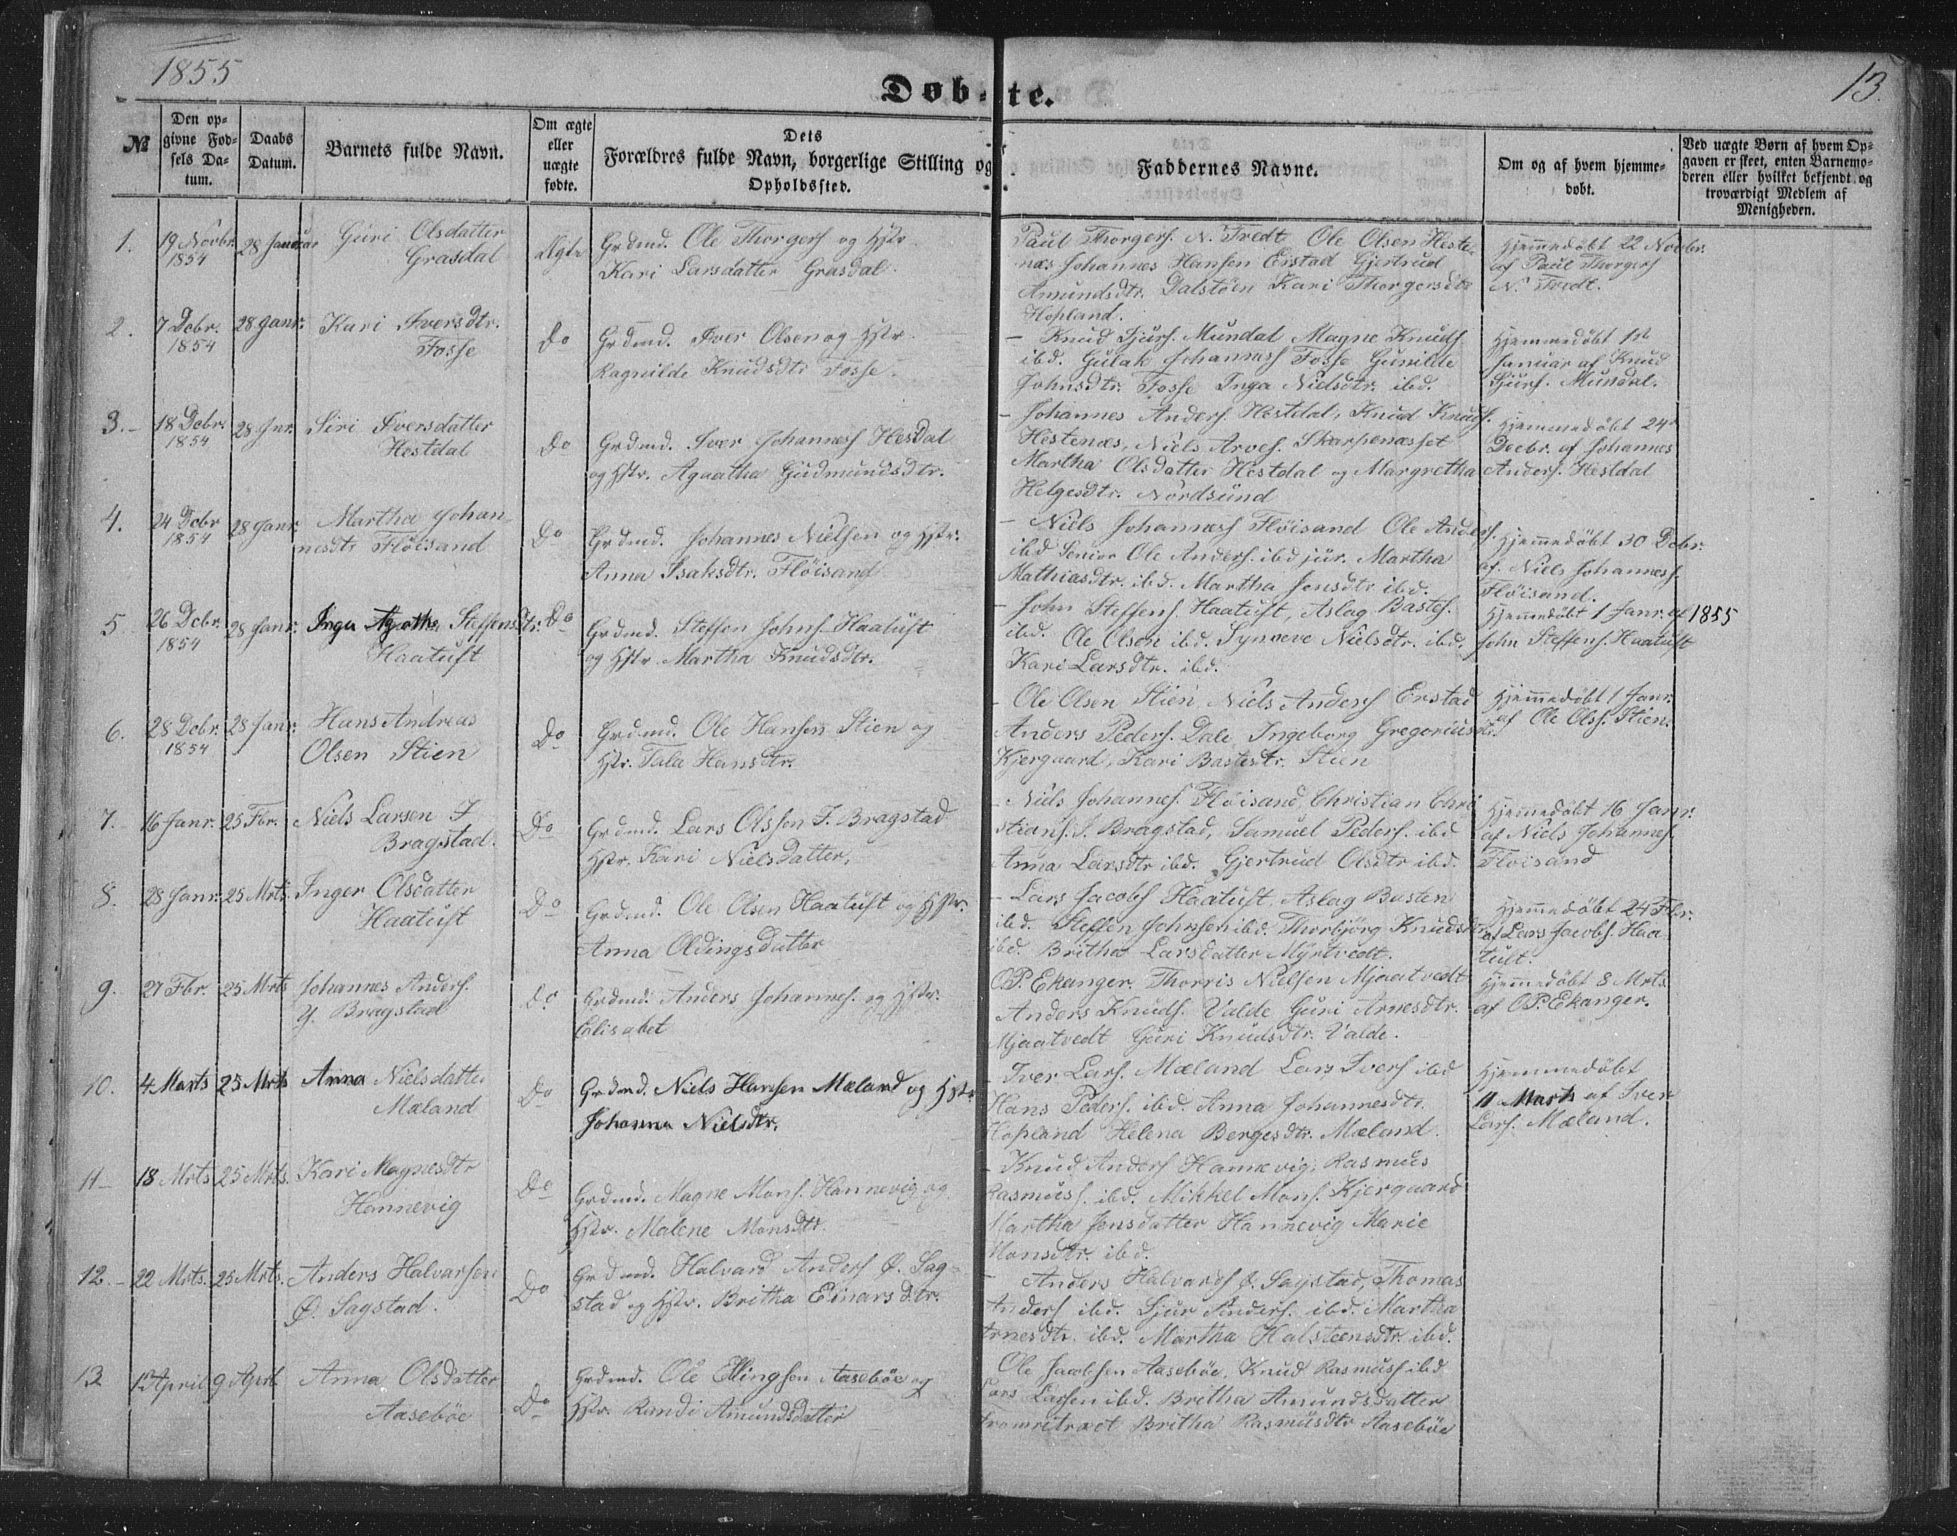 1855
13.
Døbte.
№
Den opgivne Fødsels Datum.
Daabs Datum.
Barnets fulde Navn.
Om ægte eller uægte fødte.
Dets Forældres fulde Navn, borgerlige Stilling og Opholdssted.
Faddernes Navne.
Om og af hvem hjemmedøbt.
Ved uægte Børn af hvem Opgaven er skeet, enten Barnemoderen eller hvilket bekjendt og troværdigt Medlem af Menigheden.
1. 19 Novbr. 1854 28 Januar Guri Olsdatter Grasdal Ægte
Grdmd. Ole Thorgers og Hstr
Kari Larsdatter Grasdal.
Paul Thorgers. N. Tvedt Ole Olsen Heste-
næs Johannes Hansen Erstad Gjertrud
Amundsdtr. Dalstøen Kari Thorgersdtr
Hopland.
Hjemmedöbt 22 Novbr.
af Paul Thorgers
N. Tvedt.
2. 7 Debr. 1854 28 Janr. Kari Iversdtr. Fosse Do
Grdmd. Iver Olsen og Hstr.
Ragnilde Knudsdtr Fosse.
– Knud Sjurs. Mundal Magne Knuds
ibd. Gulak Johanness Fosse Gunilde
Johnsdtr. Fosse Inga Nielsdtr. ibd.
Hjemmedöbt 1st
Januar af Knud
Sjurs. Mundal.
3. 18 Debr. 1854 28 Jnr. Siri Iversdatter Hestdal Do
Grdmd. Iver Johanness Hesdal
og Hstr. Agaatha Gudmundsdtr.
– Johannes Anders. Hestdal, Knud Knuds.
Hestenæs, Niels Arves. Skarpenæsset
Martha Olsdatter Hestdal og Margretha
Helgesdtr. Nordsund
Hjemmedöbt 24d
Decbr. af Johannes
Anders. Hestdal
4. 24 Debr 1854 28 Janr. Martha Johan-
nesdtr Flöisand Do
Grdmd. Johannes Nielsen og Hstr.
Anna Isaksdtr. Flöisand
– Niels Johanness Flöisand Ole Anders.
ibd Senior Ole Anders. ibd jur. Martha
Mathiasdtr. ibd. Martha Jensdtr ibd.
Hjemmedöbt 30 Debr.
af Niels Johanness.
Flöisand.
5 26 Debr. 1854 28 Janr. Inga Agatha Steffensdtr. Haatuft Do
Grdmd. Steffen Johns. Haatuft
og Hstr Martha Knudsdtr.
– John Steffens. Haatuft, Aslag Bastes.
ibd. Ole Olsen ibd. Synneve Nielsdtr. ibd.
Kari Larsdtr. ibd.
Hjemmedöbt 1 Janr. af 1855
John Steffens. Haatuft
6. 28 Debr. 1854 28 Janr. Hans Andreas
Olsen Stien Do
Grdmd. Ole Hansen Stien og
Hstr. Tala Hansdtr.
– Ole Olsen Stien, Niels Anderss Erstad
Anders Peders. Dale Ingeborg Gregoriusdtr.
Kjergaard, Kari Bastesdtr. Stien
Hjemmedöbt 1 Janr.
af Ole Ols. Stien.
7. 16 Janr. 25 Fbr. Niels Larsen I.
Bragstad. Do
Grdmd. Lars Olssen I. Bragstad
Hstr. Kari Nielsdatter,
– Niels Johannes. Flöisand, Christian Chri
stians. I. Bragstad, Samuel Peders. ibd
Anna Larsdtr ibd. Gjertrud Olsdtr ibd.
Hjemmedöbt 16 Janr.
af Niels Johannes.
Flöisand
8. 28 Janr. 25 Mrts Inger Olsdatter
Haatuft Do
Grdmd. Ole Olsen Haatuft og Hstr.
Anna Oldingsdatter
– Lars Jacobs Haatuft, Aslag Basten
ibd. Steffen Johnsen ibd. Thorbjörg Knudsdtr
ibd. Britha Larsdatter Myrtvedt.
Hjemmedöbt 24 Fbr.
af Lars Jacobs. Haa-
tuft.
9. 27 Fbr. 25 Mrts Johannes Anders.
Y. Bragstad Do
Grdmd. Anders Johannes. og Hstr.
Elisabet
O.P. Ekanger. Thorris Nielsen Mjaatvedt
Anders Knuds. Valde Guri Arnesdtr.
Mjaatvedt Guri Knudsdtr. Valde.
Hjemmedöbt 8 Mrts.
af O.P. Ekanger.
10. 4 Marts 25 Mrts Anna Nielsdatter
Mæland Do
Grdmd Niels Hansen Mæland og Hstr.
Johanna Nielsdtr.
– Iver Lars. Mæland Lars Ivers ibd
Hans Peders. ibd. Anna Johannesdtr.
Hopland Helena Bergesdtr. Mæland.
Hjemmedöbt
11 Marts af Iver
Lars. Mæland.
11 – 18 Mrts 25 Mrts. Kari Magnesdtr
Hannevig Do
Grdmd. Magne Mons. Hannevig og
Hstr. Malene Monsdtr.
– Knud Anders Hannevig, Rasmus
Rasmuss. ibd. Mikkel Mons. Kjergaard
Martha Jensdatter Hannevig Marie
Monsdtr. ibd.
12. – 22 Mrts. 25 Mrts. Anders Halvarsen
Ø. Sagstad. Do
Grdmd. Halvard Anders Ø. Sag-
stad og Hstr. Britha Einarsdtr.
– Anders Halvards Ø. Sagstad, Thomas
Anders ibd. Sjur Anders. ibd. Martha
Arnesdtr. ibd. Martha Halsteensdtr. ibd.
13 1 April 9 April Anna Olsdatter
Aasebøe Do
Grdmd. Ole Ellingsen Aasebøe og
Hstr. Randi Amundsdatter
Ole Jacobsen Aasebøe. Knud Rasmuss ibd
Lars Larsen ibd. Britha Amundsdatter
Britha Rasmusdtr Aasebøe